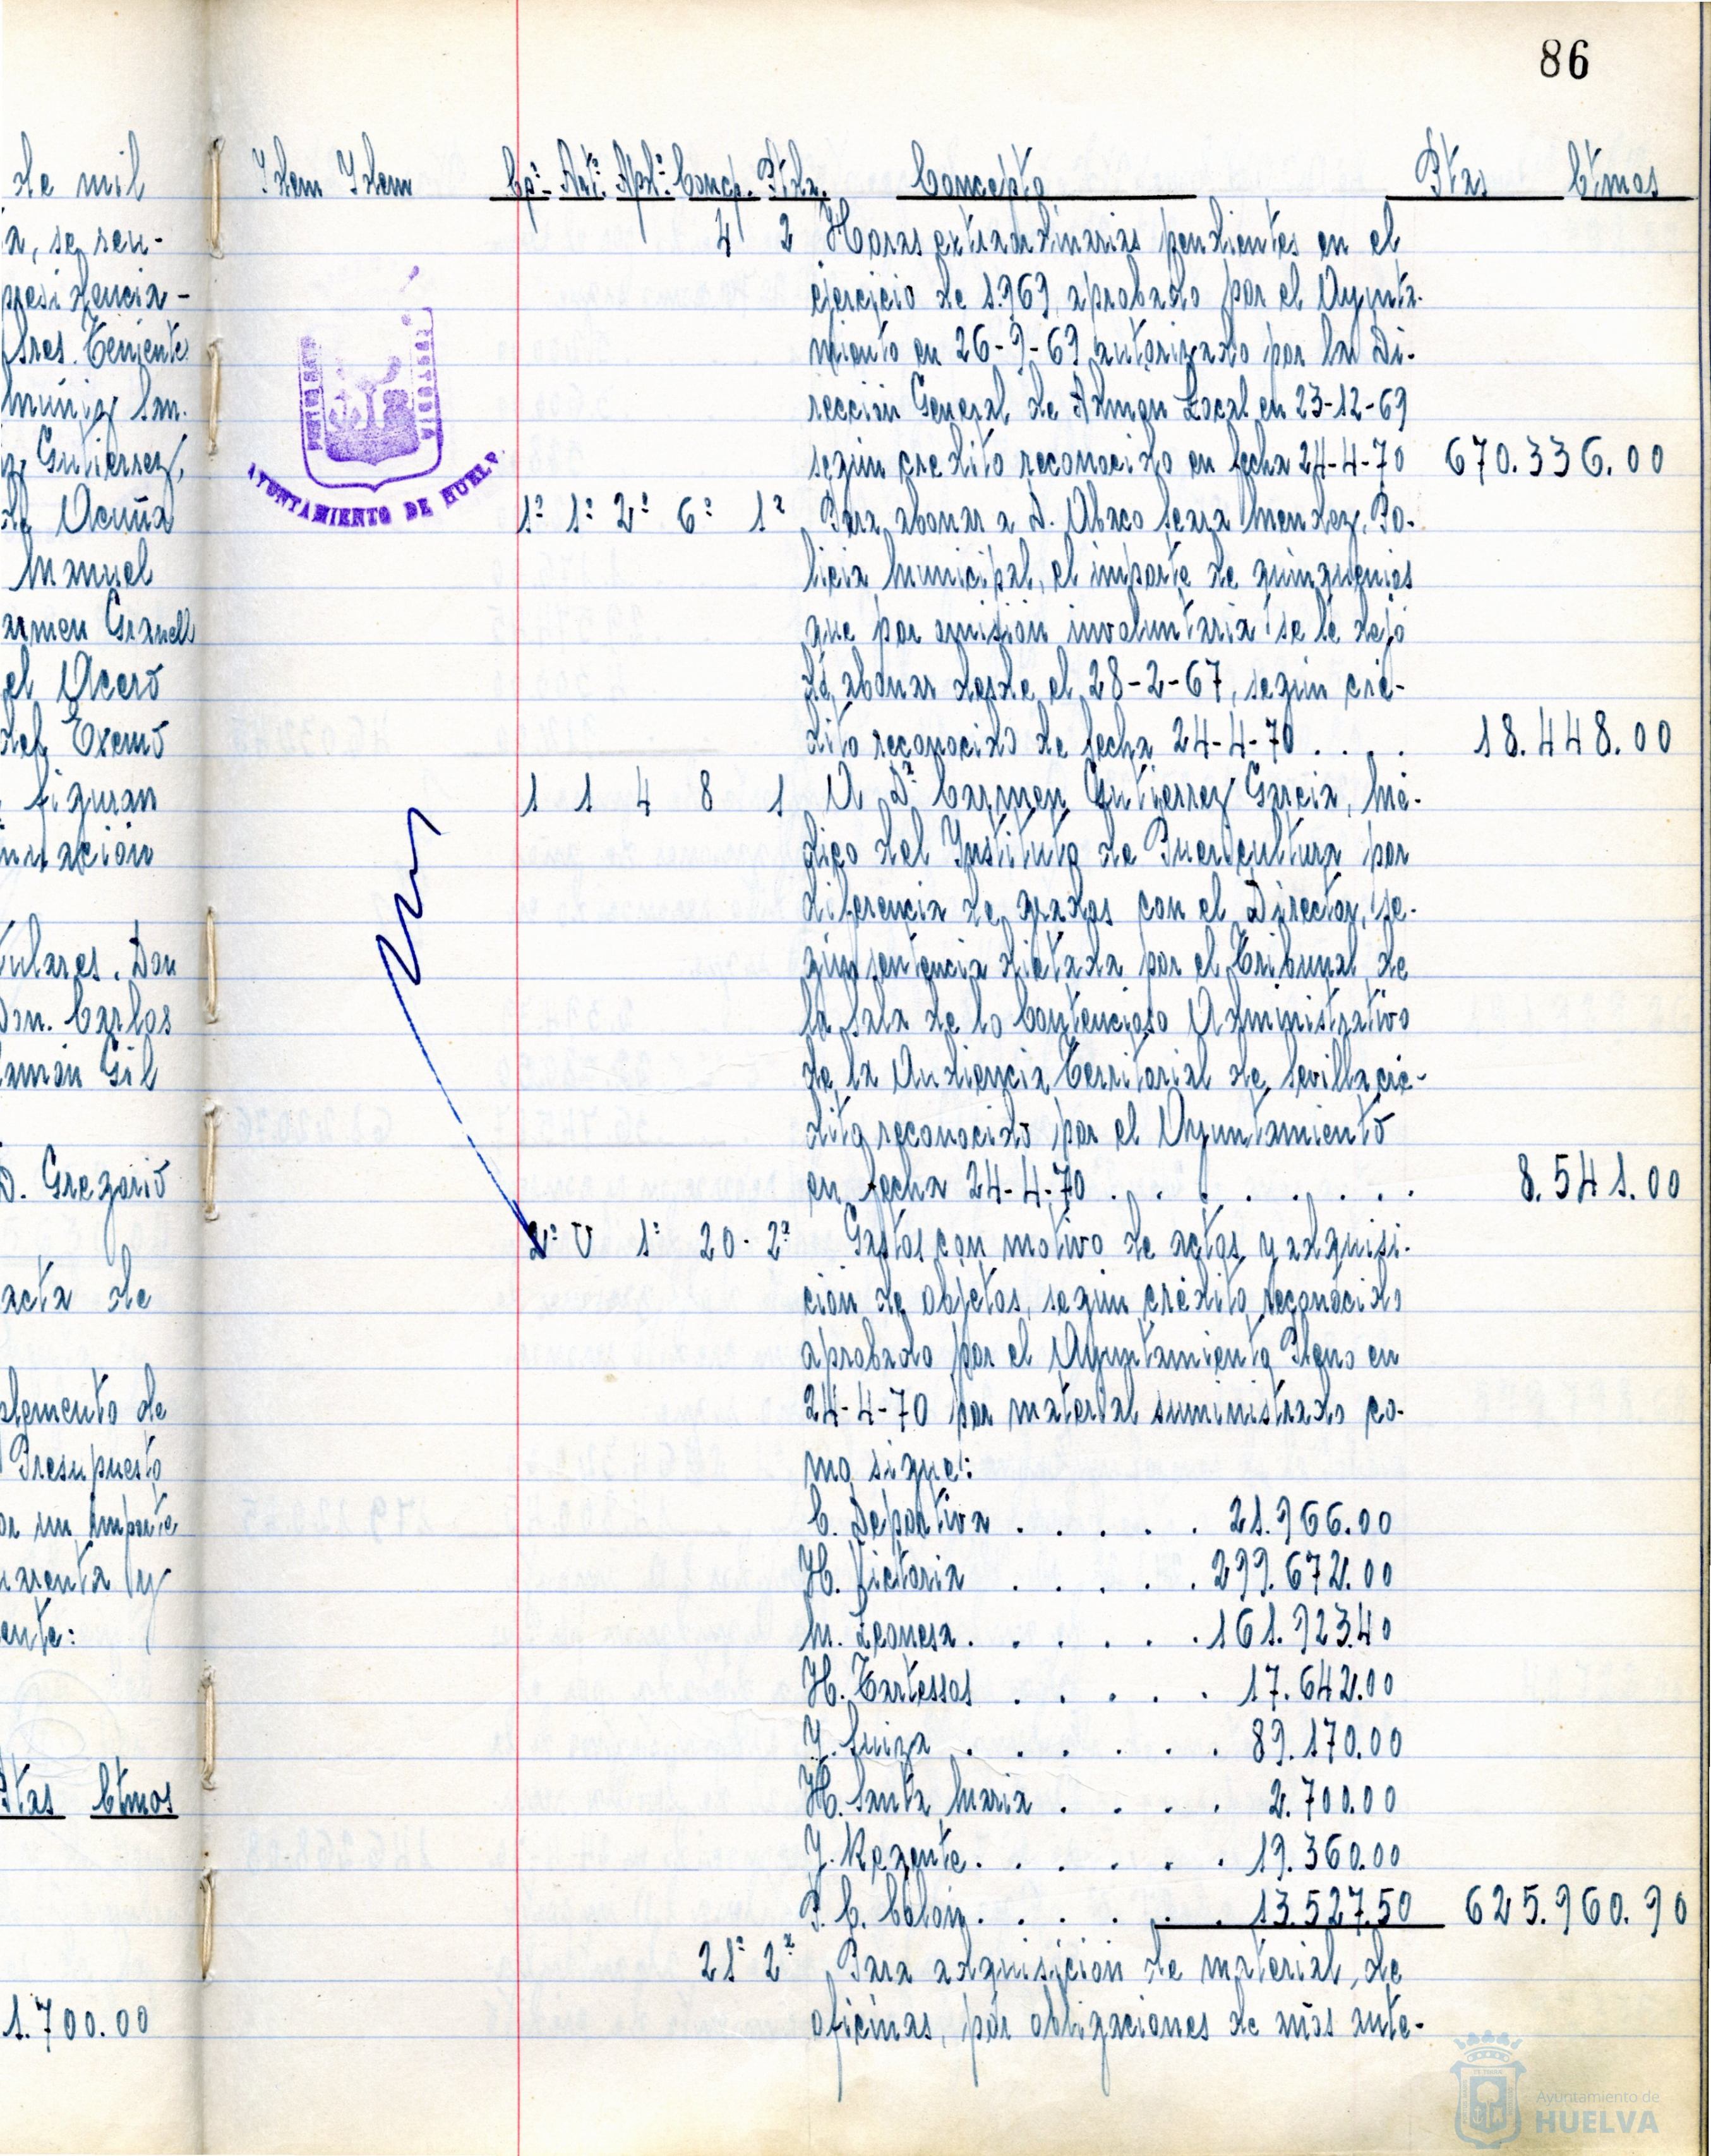 86
de mil
a, se reu-
presidencia-
Sres. Teniente
Muñiz San.
z Gutierrez,
de Acuña
Manuel
armen Granell
el Acero
del Excmo
figuran
inuación
tulares. Don
Don. Carlos
amón Gil
D. Gregorio
acta de
plemento de
Presupuesto
or un importe
uarenta y
ente:
Ptas Ctmos
1.700.00
Idem Idem Cpº- Artº. Aptº. Concp. Ptda. Concepto Ptas Ctmos
4 2 Horas extraordinarias pendientes en el
ejercicio de 1.969, aprobado por el Ayunta-
miento en 26-9-69 autorizado por la Di-
rección General de Admon Local en 23-12-69
según credito reconocido en fecha 24-4-70 670.336.00
1º 1º 2º 6º 1ª Para abonar a D. Seara Mendez, Po-
licia Municipal, el importe de quinquenios
que por omisión involuntaria se le dejó
de abonar desde el 28-2-67, según cré-
dito reconocido de fecha 24-4-70 . . . . 18.448.00
1 1 4 8 1 A Dª Carmen Gutierrez Garcia, Mé-
dico del Instituto de Puericultura por
diferencia de grados con el Director, se-
gún sentencia dictada por el Tribunal de
la Sala de lo Contencioso Administrativo
de la Audiencia Territorial de Sevilla cré-
dito reconocido por el Ayuntamiento
en fecha 24-4-70 . . . . . . . 8.541.00
2º U 1º 20. 2ª Gastos con motivo de actos y adquisi-
ción de objetos, según crédito reconocido
aprobado por el Ayuntamiento Pleno en
24-4-70 por material suministrado co-
mo sigue:
C. Deportiva . . . . . 21.966.00
H. Victoria . . . . . 299.672.00
M. Leonesa . . . . . . 161.923.40
H. Tartessos . . . . . 17.642.00
J. Suiza . . . . . . 89.170.00
H. Santa Maria . . . . 2.700.00
J. Regente . . . . . . 19.360.00
P. C. Colón . . . . . . 13.527.50 625.960.90
21º 2ª Para adquisición de material de
oficinas, por obligaciones de años ante-
AYUNTAMIENTO DE HUELVA
Ayuntamiento de
HUELVA